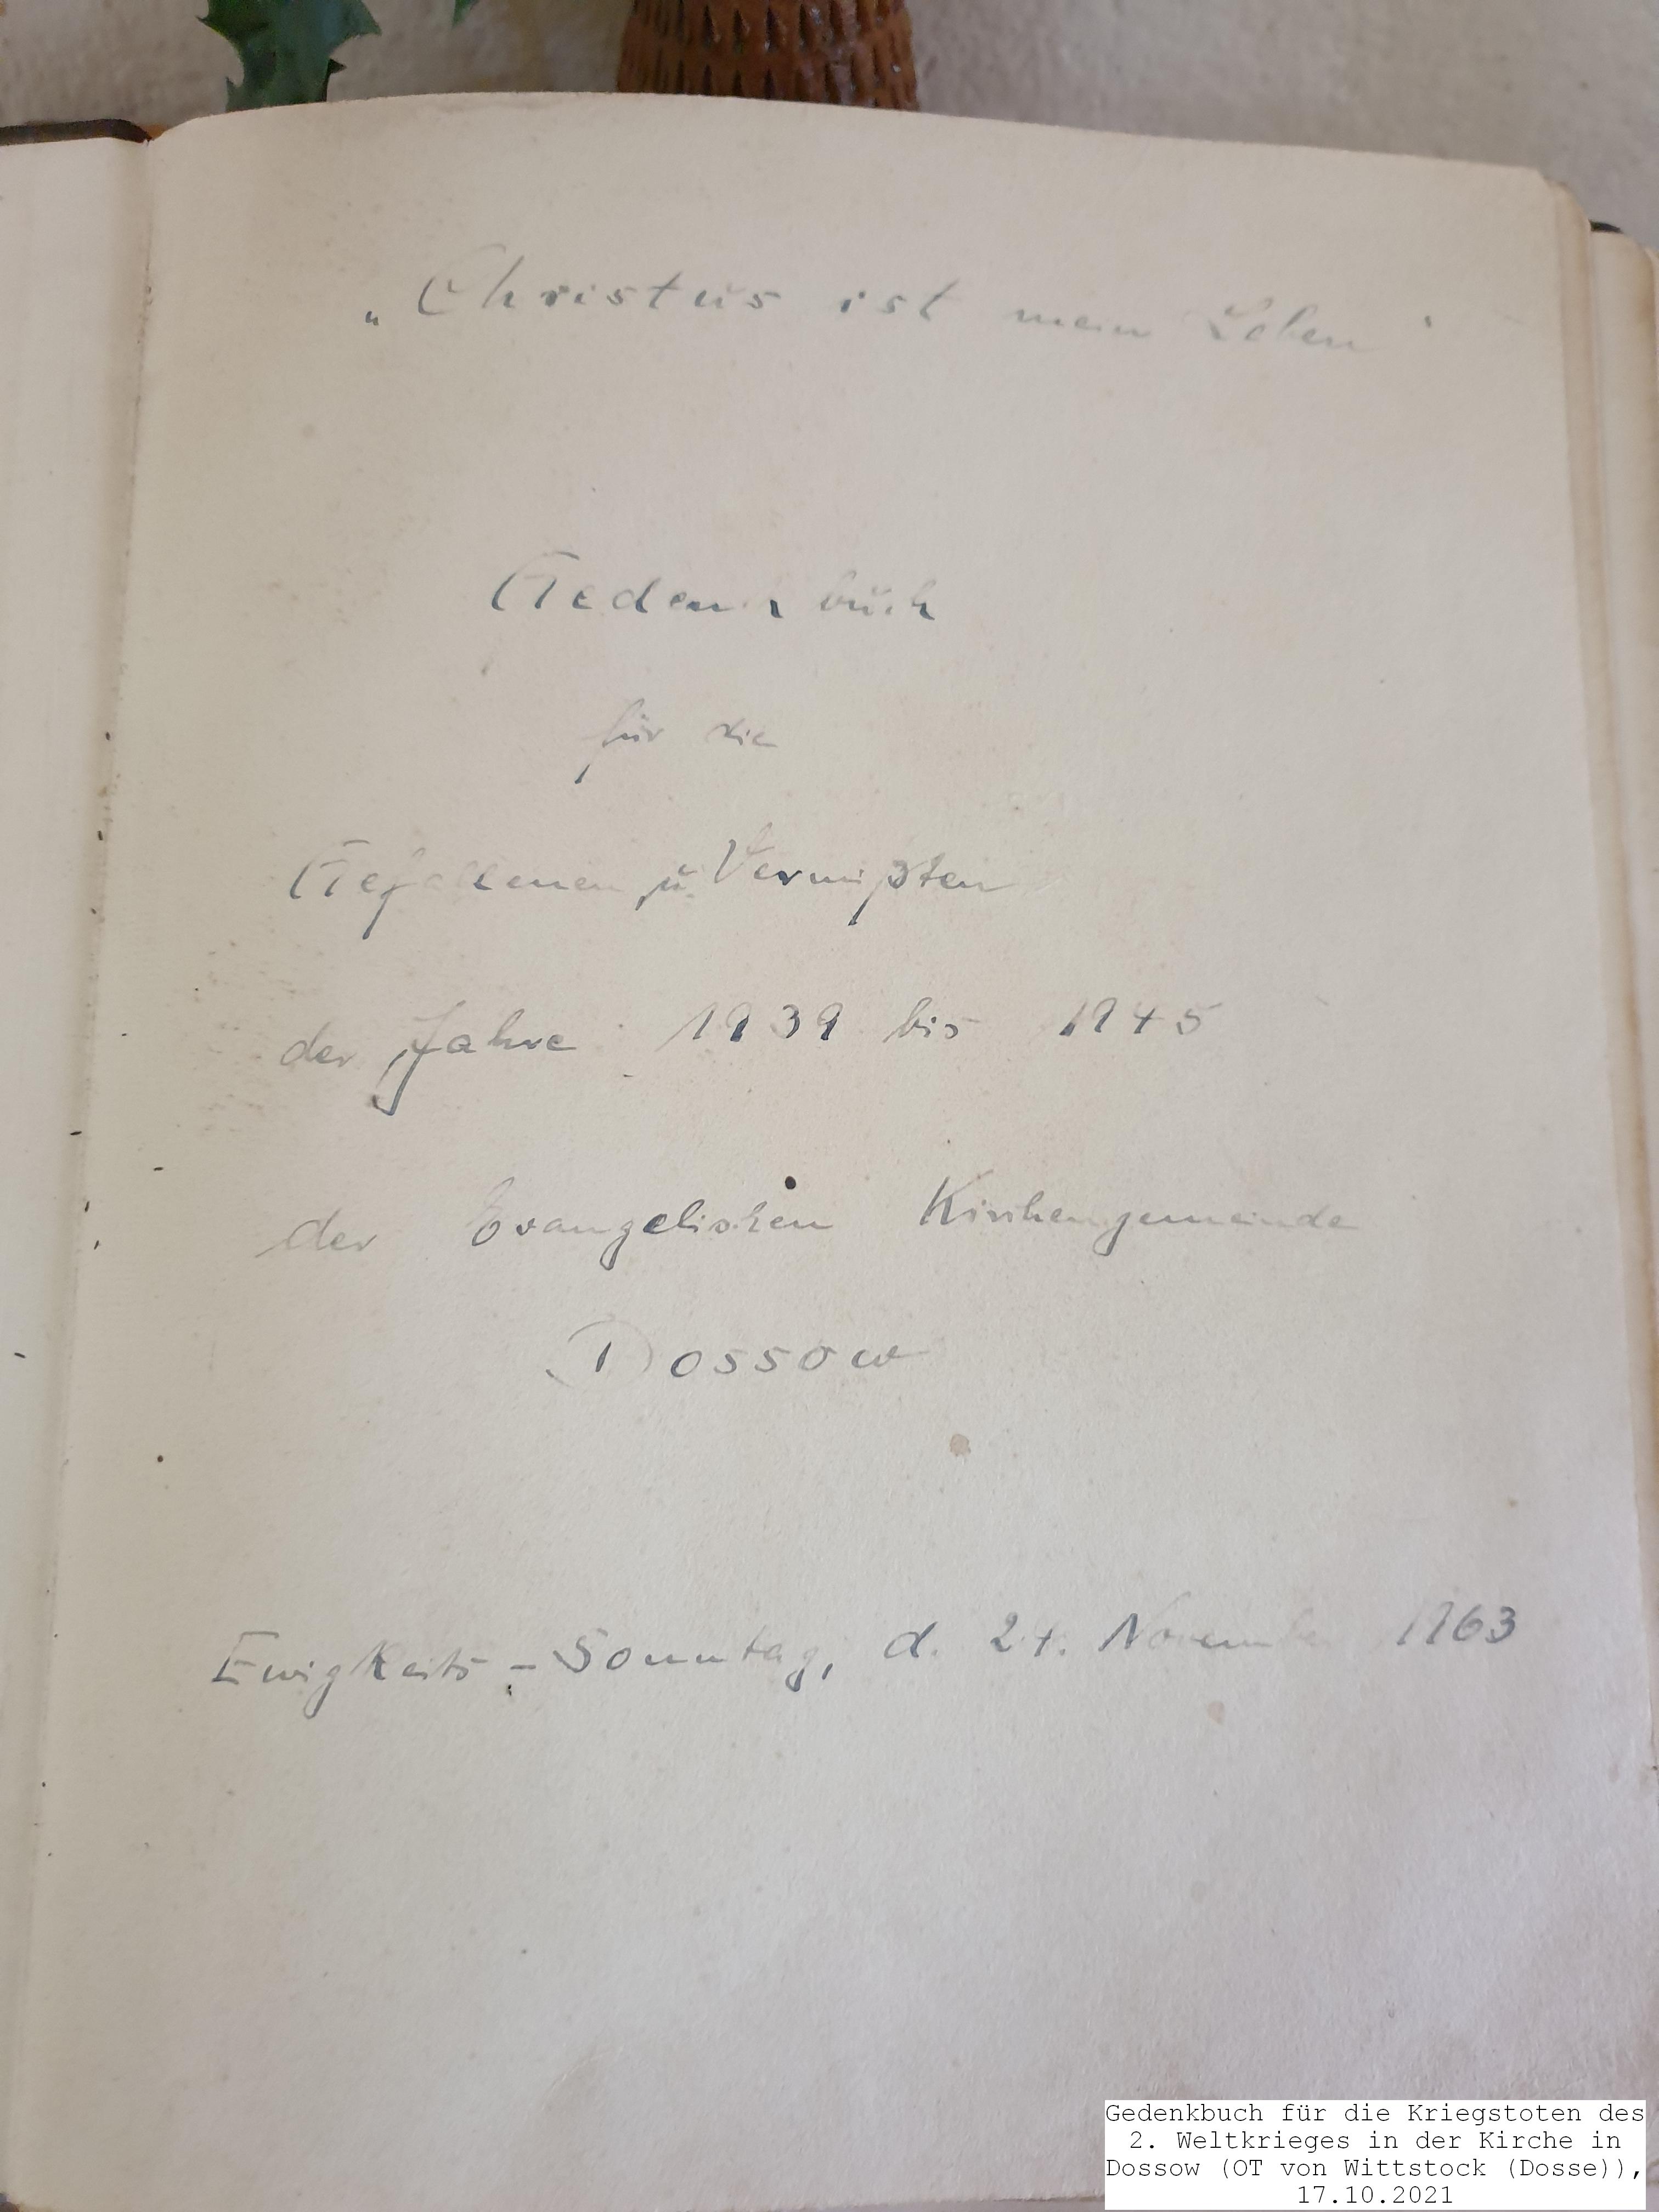 „Christus ist mein Leben"
Gedenkbuch
für die
Gefallenen u. Vermißten
der Jahre 1939 bis 1945
der Evangelischen Kirchengemeinde
Dossow
Ewigkeits-Sonntag, d. 24. November 1963
Gedenkbuch für die Kriegstoten des
2. Weltkrieges in der Kirche in
Dossow (OT von Wittstock (Dosse)),
17.10.2021